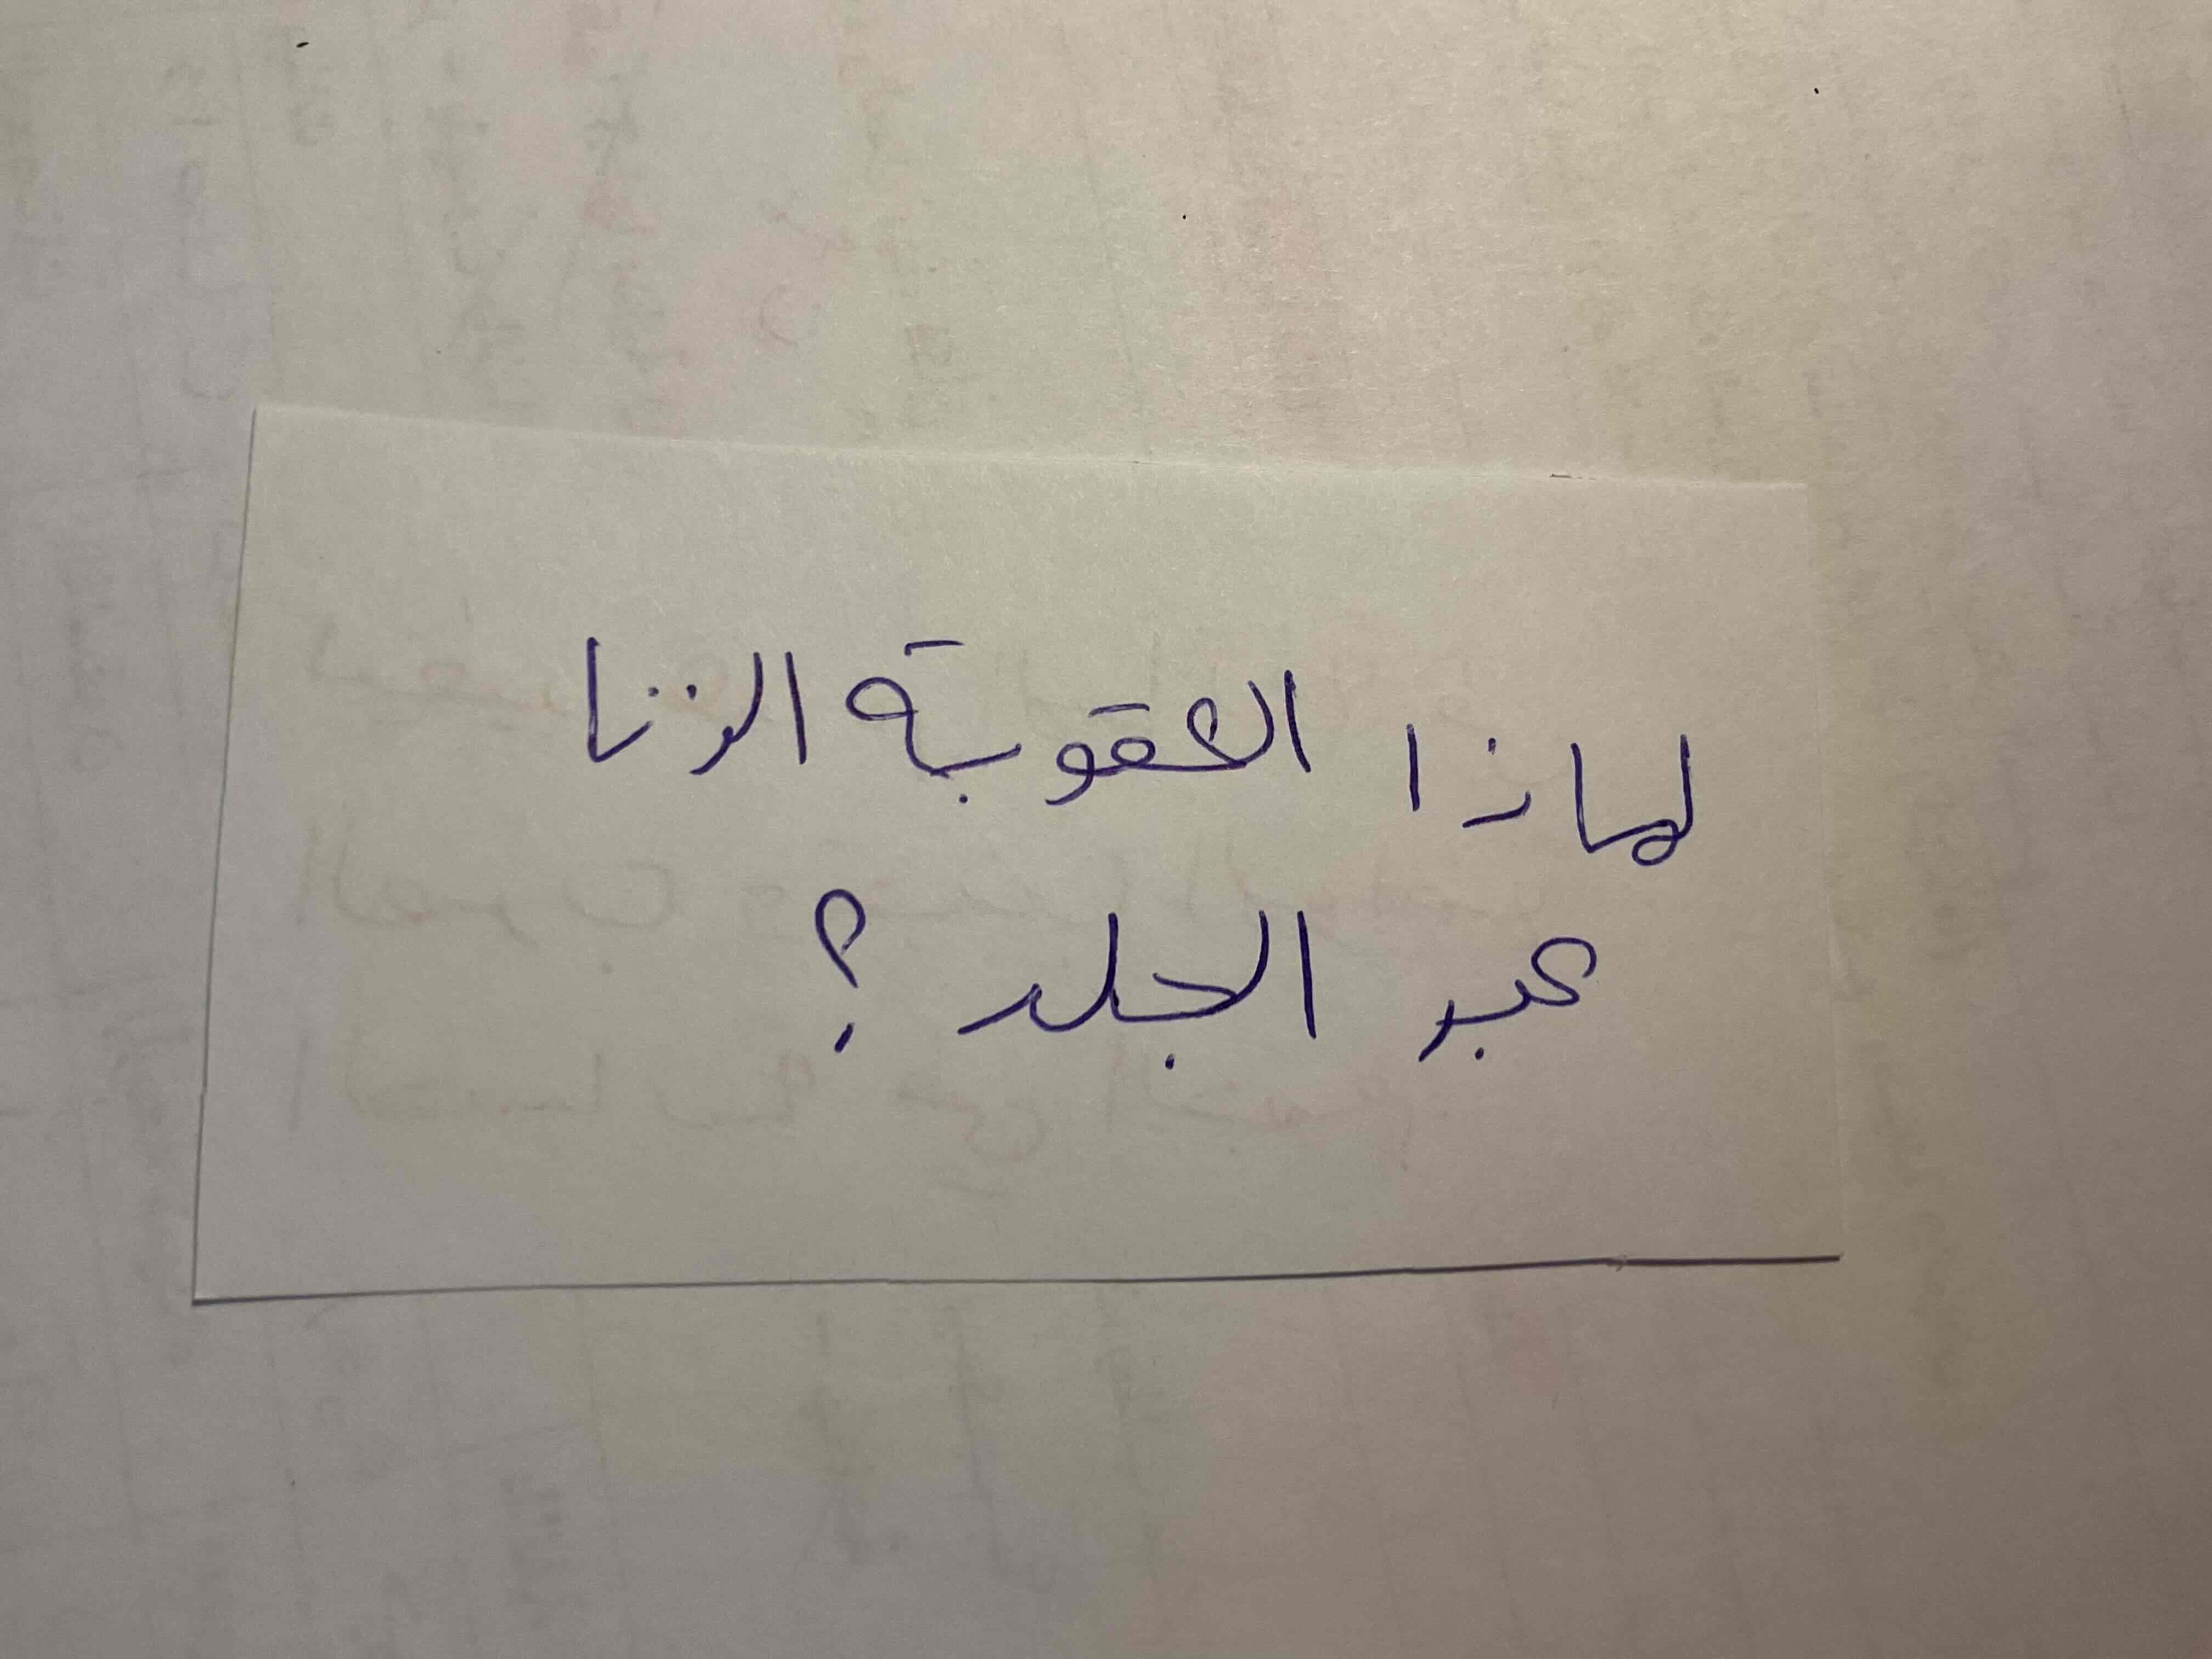 لماذا العقوبة الزنا
عبر الجلد ؟